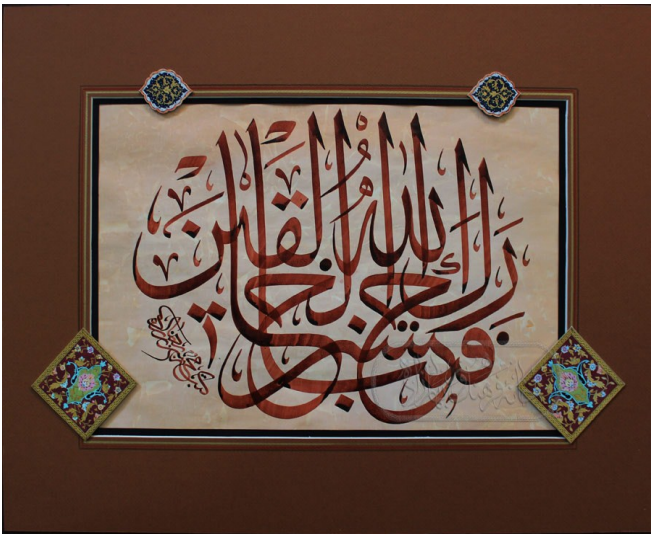 فتبارك الله احسن الخالقين